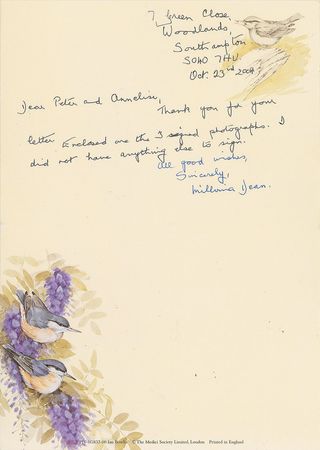 7 Green Close,
Woodlands,
Southampton
SO40 7HU.
Oct. 23rd 2004
Dear Peter and Annelise,
Thank you for your
letter Enclosed are the 3 signed photographs. I
did not have anything else to sign.
all good wishes,
Sincerely,
Millvina Dean.
© The Medici Society Limited, London Printed in England